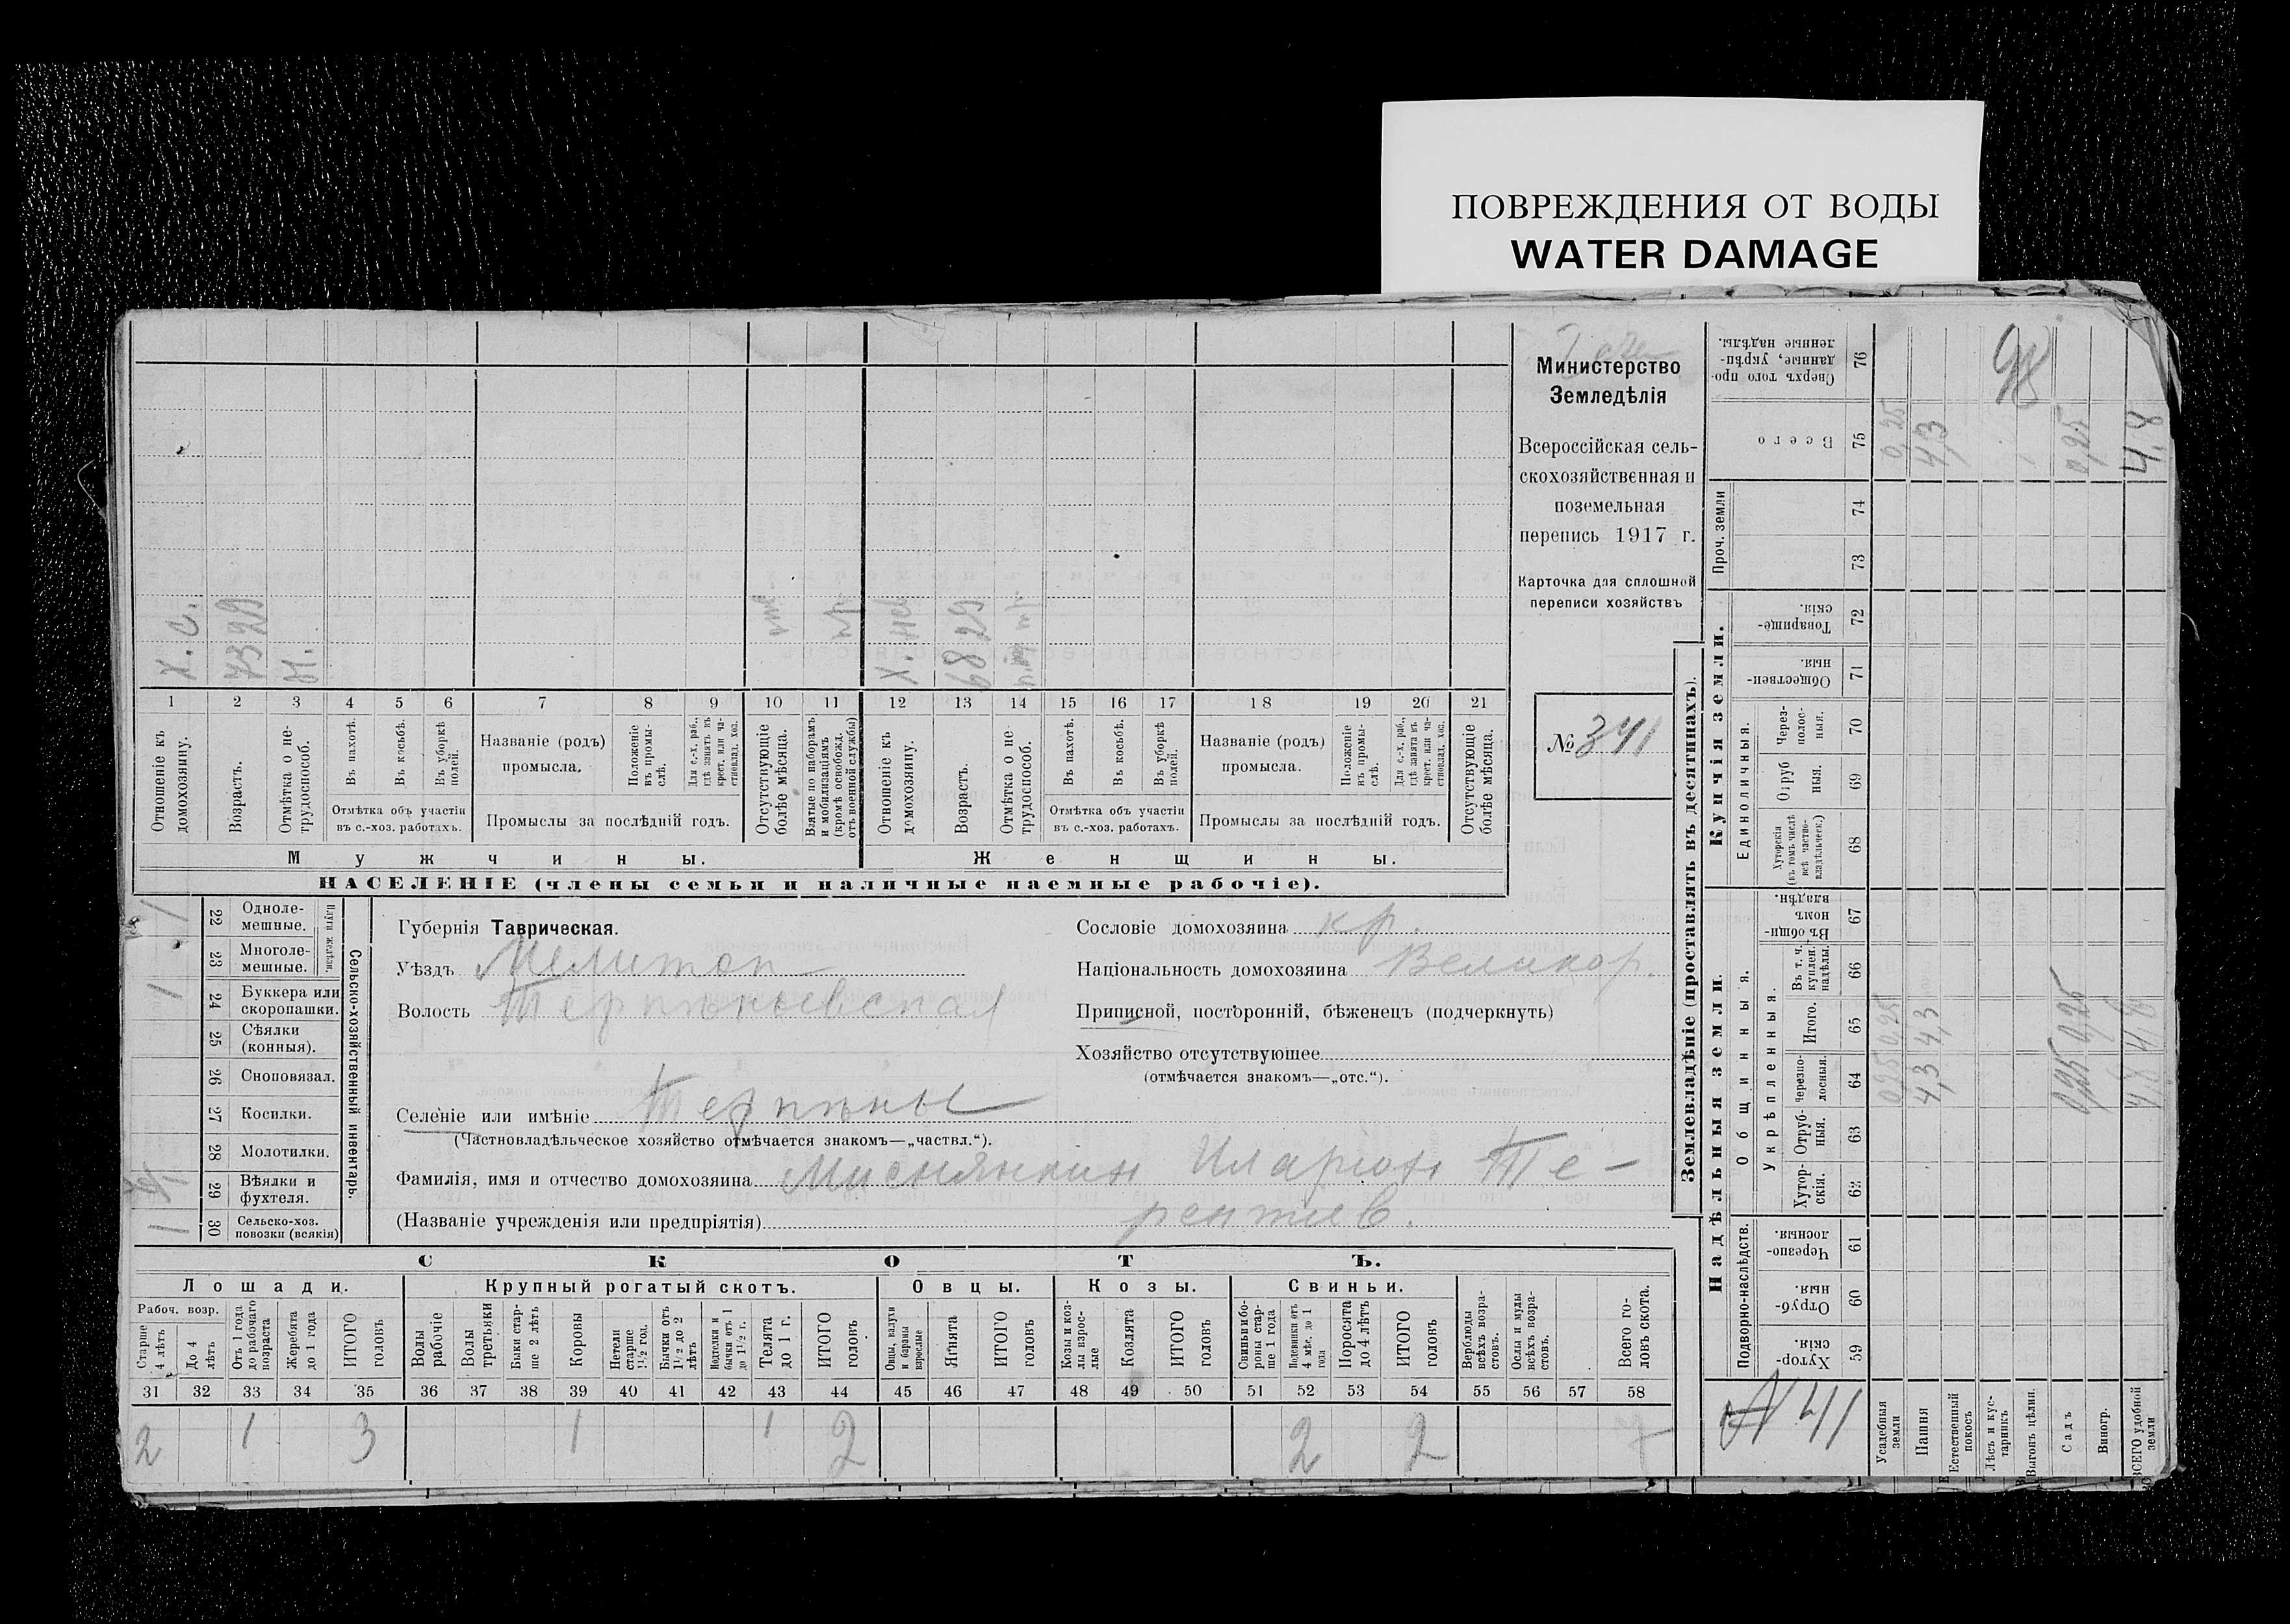 ПОВРЕЖДЕНИЯ ОТ ВОДЫ
WATER DAMAGE
Министерство
Земледѣлія
Всероссійская сель-
скохозяйственная и
поземельная
перепись 1917 г.
Карточка для сплошной
переписи хозяйствъ
№ 341
Х. С.
73 29
Н.
Х. Нев
68 29
1 2 3 4 5 6 7 8 9 10 11 12 13 14 15 16 17 18 19 20 21
Отношеніе къ домохозяину.
Возрастъ.
Отмѣтка о не-трудоспособ.
Въ пахотѣ.
Въ косьбѣ.
Въ уборкѣ полей.
Отмѣтка объ участіи
въ с.-хоз. работахъ.
Названіе (родъ)
промысла.
Положеніе въ промы-слѣ.
Для с.-х. раб., гдѣ занятъ въ крест. или ча-стновлад. хоз.
Промыслы за послѣдній годъ.
Отсутствующіе болѣе мѣсяца.
Взятые по наборамъ и мобилизаціямъ (кромѣ освобожд. отъ военной службы)
Отношеніе къ домохозяину.
Возрастъ.
Отмѣтка о не-трудоспособ.
Въ пахотѣ.
Въ косьбѣ.
Въ уборкѣ полей.
Отмѣтка объ участіи
въ с.-хоз. работахъ.
Названіе (родъ)
промысла.
Положеніе въ промы-слѣ.
Для с.-х. раб., гдѣ занята въ крест. или ча-стновлад. хоз.
Промыслы за послѣдній годъ.
Отсутствующіе болѣе мѣсяца.
Мужчины.
Женщины.
НАСЕЛЕНІЕ (члены семьи и наличные наемные рабочіе).
Сельско-хозяйственный инвентарь.
Плуги желѣзн.
22 Одноле-мешные. 1
23 Многоле-мешные.
24 Буккера или скоропашки. 1
25 Сѣялки (конныя).
26 Сноповязал.
27 Косилки.
28 Молотилки.
29 Вѣялки и фухтеля.
30 Сельско-хоз. повозки (всякія) 1
Губернія Таврическая.
Уѣздъ Мелитоп
Волость Терпѣньевская
Селеніе или имѣніе Терпѣнье
(Частновладѣльческое хозяйство отмѣчается знакомъ—„частвл.“).
Сословіе домохозяина кр.
Національность домохозяина Великор.
Приписной, посторонній, бѣженецъ (подчеркнуть)
Хозяйство отсутствующее
(отмѣчается знакомъ—„отс.“).
Фамилія, имя и отчество домохозяина Миснянкин Иларіон Те-
(Названіе учрежденія или предпріятія) рентіев.
СКОТЪ.
Лошади. Крупный рогатый скотъ. Овцы. Козы. Свиньи.
Рабоч. возр.
Старше 4 лѣтъ
До 4 лѣтъ
Отъ 1 года до рабочаго возраста
Жеребята до 1 года
ИТОГО головъ
Волы рабочіе
Волы третьяки
Быки стар-ше 2 лѣтъ
Коровы
Нетели старше 1½ год.
Бычки отъ 1½ до 2 лѣтъ
Подтелки и бычки отъ 1 до 1½ г.
Телята до 1 г.
ИТОГО головъ
Овцы, валухи и бараны взрослые
Ягнята
ИТОГО головъ
Козы и коз-лы взрос-лые
Козлята
ИТОГО головъ
Свиньи и бо-ровы стар-ше 1 года
Подсвинки отъ 4 мѣс. до 1 года
Поросята до 4 лѣтъ
ИТОГО головъ
Верблюды всѣхъ возра-стовъ.
Ослы и мулы всѣхъ возра-стовъ.
Всего го-ловъ скота.
31 32 33 34 35 36 37 38 39 40 41 42 43 44 45 46 47 48 49 50 51 52 53 54 55 56 57 58
2 1 3 1 1 2 2 2 7
Землевладѣніе (проставлять въ десятинахъ).
Надѣльныя земли.
Купчія земли.
Проч. земли
Подворно-наслѣдств.
Общинныя.
Укрѣпленныя.
Единоличныя.
Хутор-скія. 59
Отруб-ныя. 60
Черезпо-лосныя. 61
Хутор-скія. 62
Отруб-ныя. 63
черезпо-лосныя. 64
Итого. 65
Въ т. ч. куплен. надѣлы. 66
Въ общи-номъ владѣн. 67
Хуторскія (въ томъ числѣ всѣ частно-владѣльческ.) 68
Отруб ныя. 69
Через-полос-ныя. 70
Обществен-ныя. 71
Товарище-скія. 72
73
74
Всего 75
Сверхъ того про-данные, укрѣп-ленные надѣлы. 76
41
Усадебныя земли 0,25 0,25 0,25
Пашня 4,3 4,3 4,3
Естественный покосъ
Лѣсъ и кус-тарникъ
Выгонъ цѣлин.
Садъ 0,25 0,25 0,25
Виногр.
ВСЕГО удобной земли 4,8 4,8 4,8
98